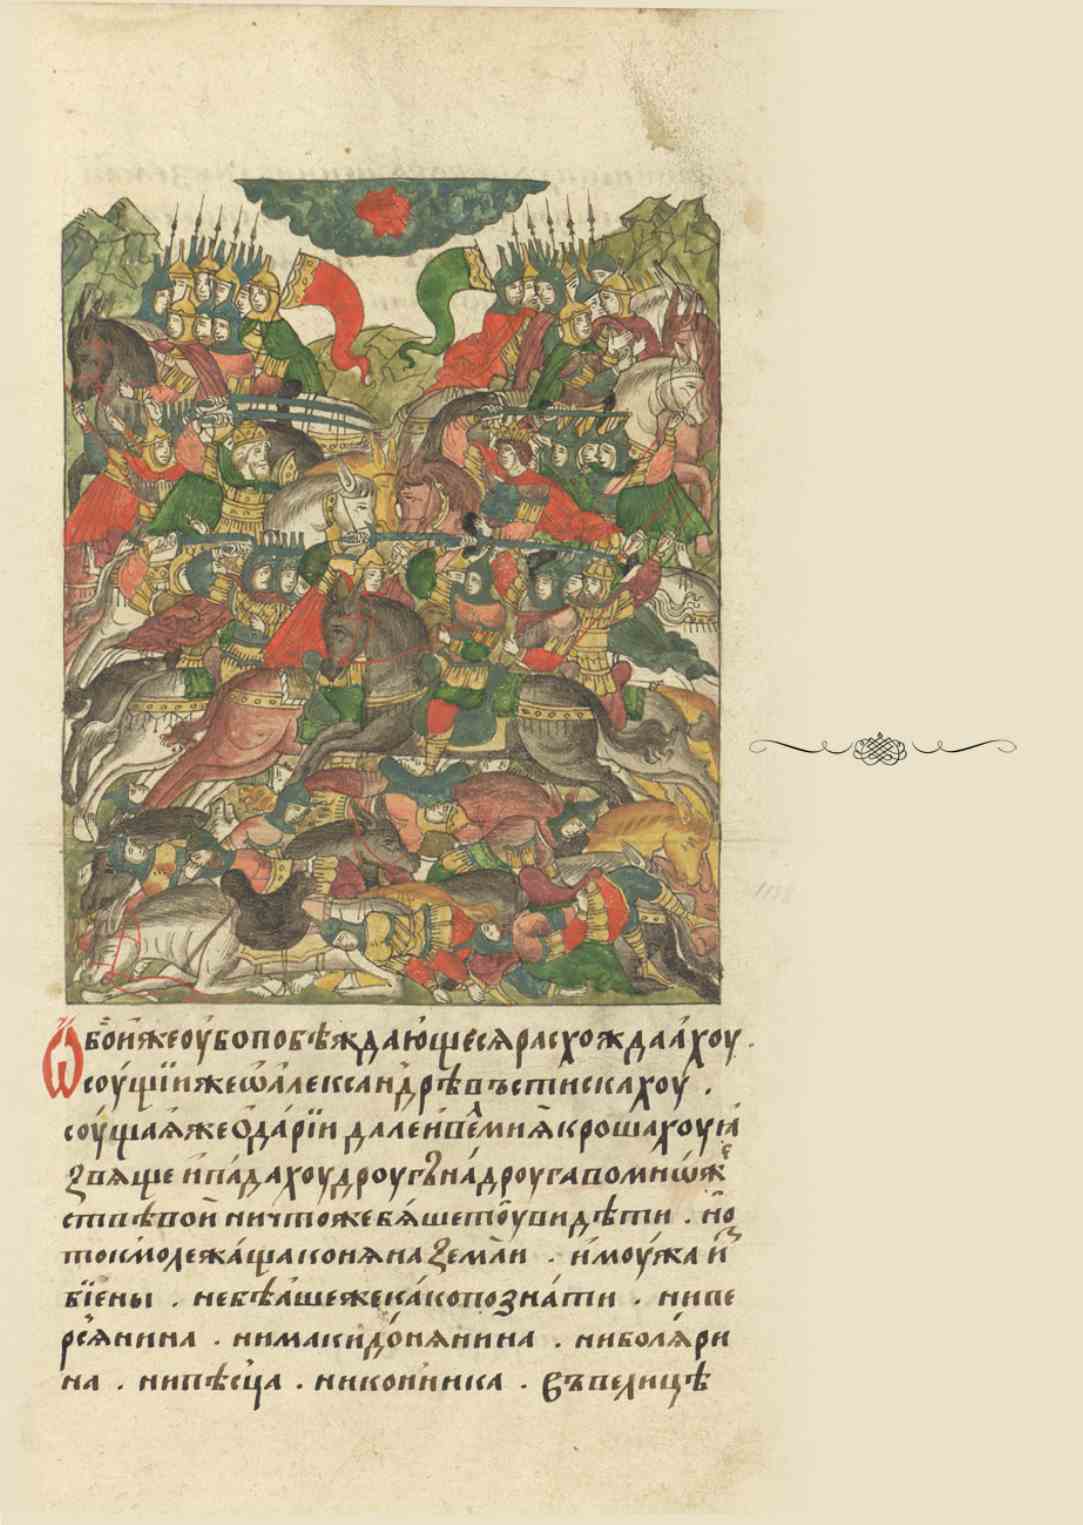 Ѿбои́жеоу́бопобѣжда́ющесѧрасхождаа́хоу .
соу́щїиижеѡа́леѯандрѣвъстискахоу .
соу́щаѧ́жеѡда́рїи далеивꙋ́ мниѧ́крошахоуи
ꙁвѧще ипа́дахоудроугъна́дроугапомно́ж
ствѣвои ничтожебѧ́шето́увидѣти . но
токмолежа́щаконѧнаꙁемли . имоу́жа и
бїены . небѣа́шежека́копозна́ти . нипе
рсѧ́нина . нимакидо́нѧнина . ниболѧ́ри
на . нипѣсца . никонника . въвелицѣ